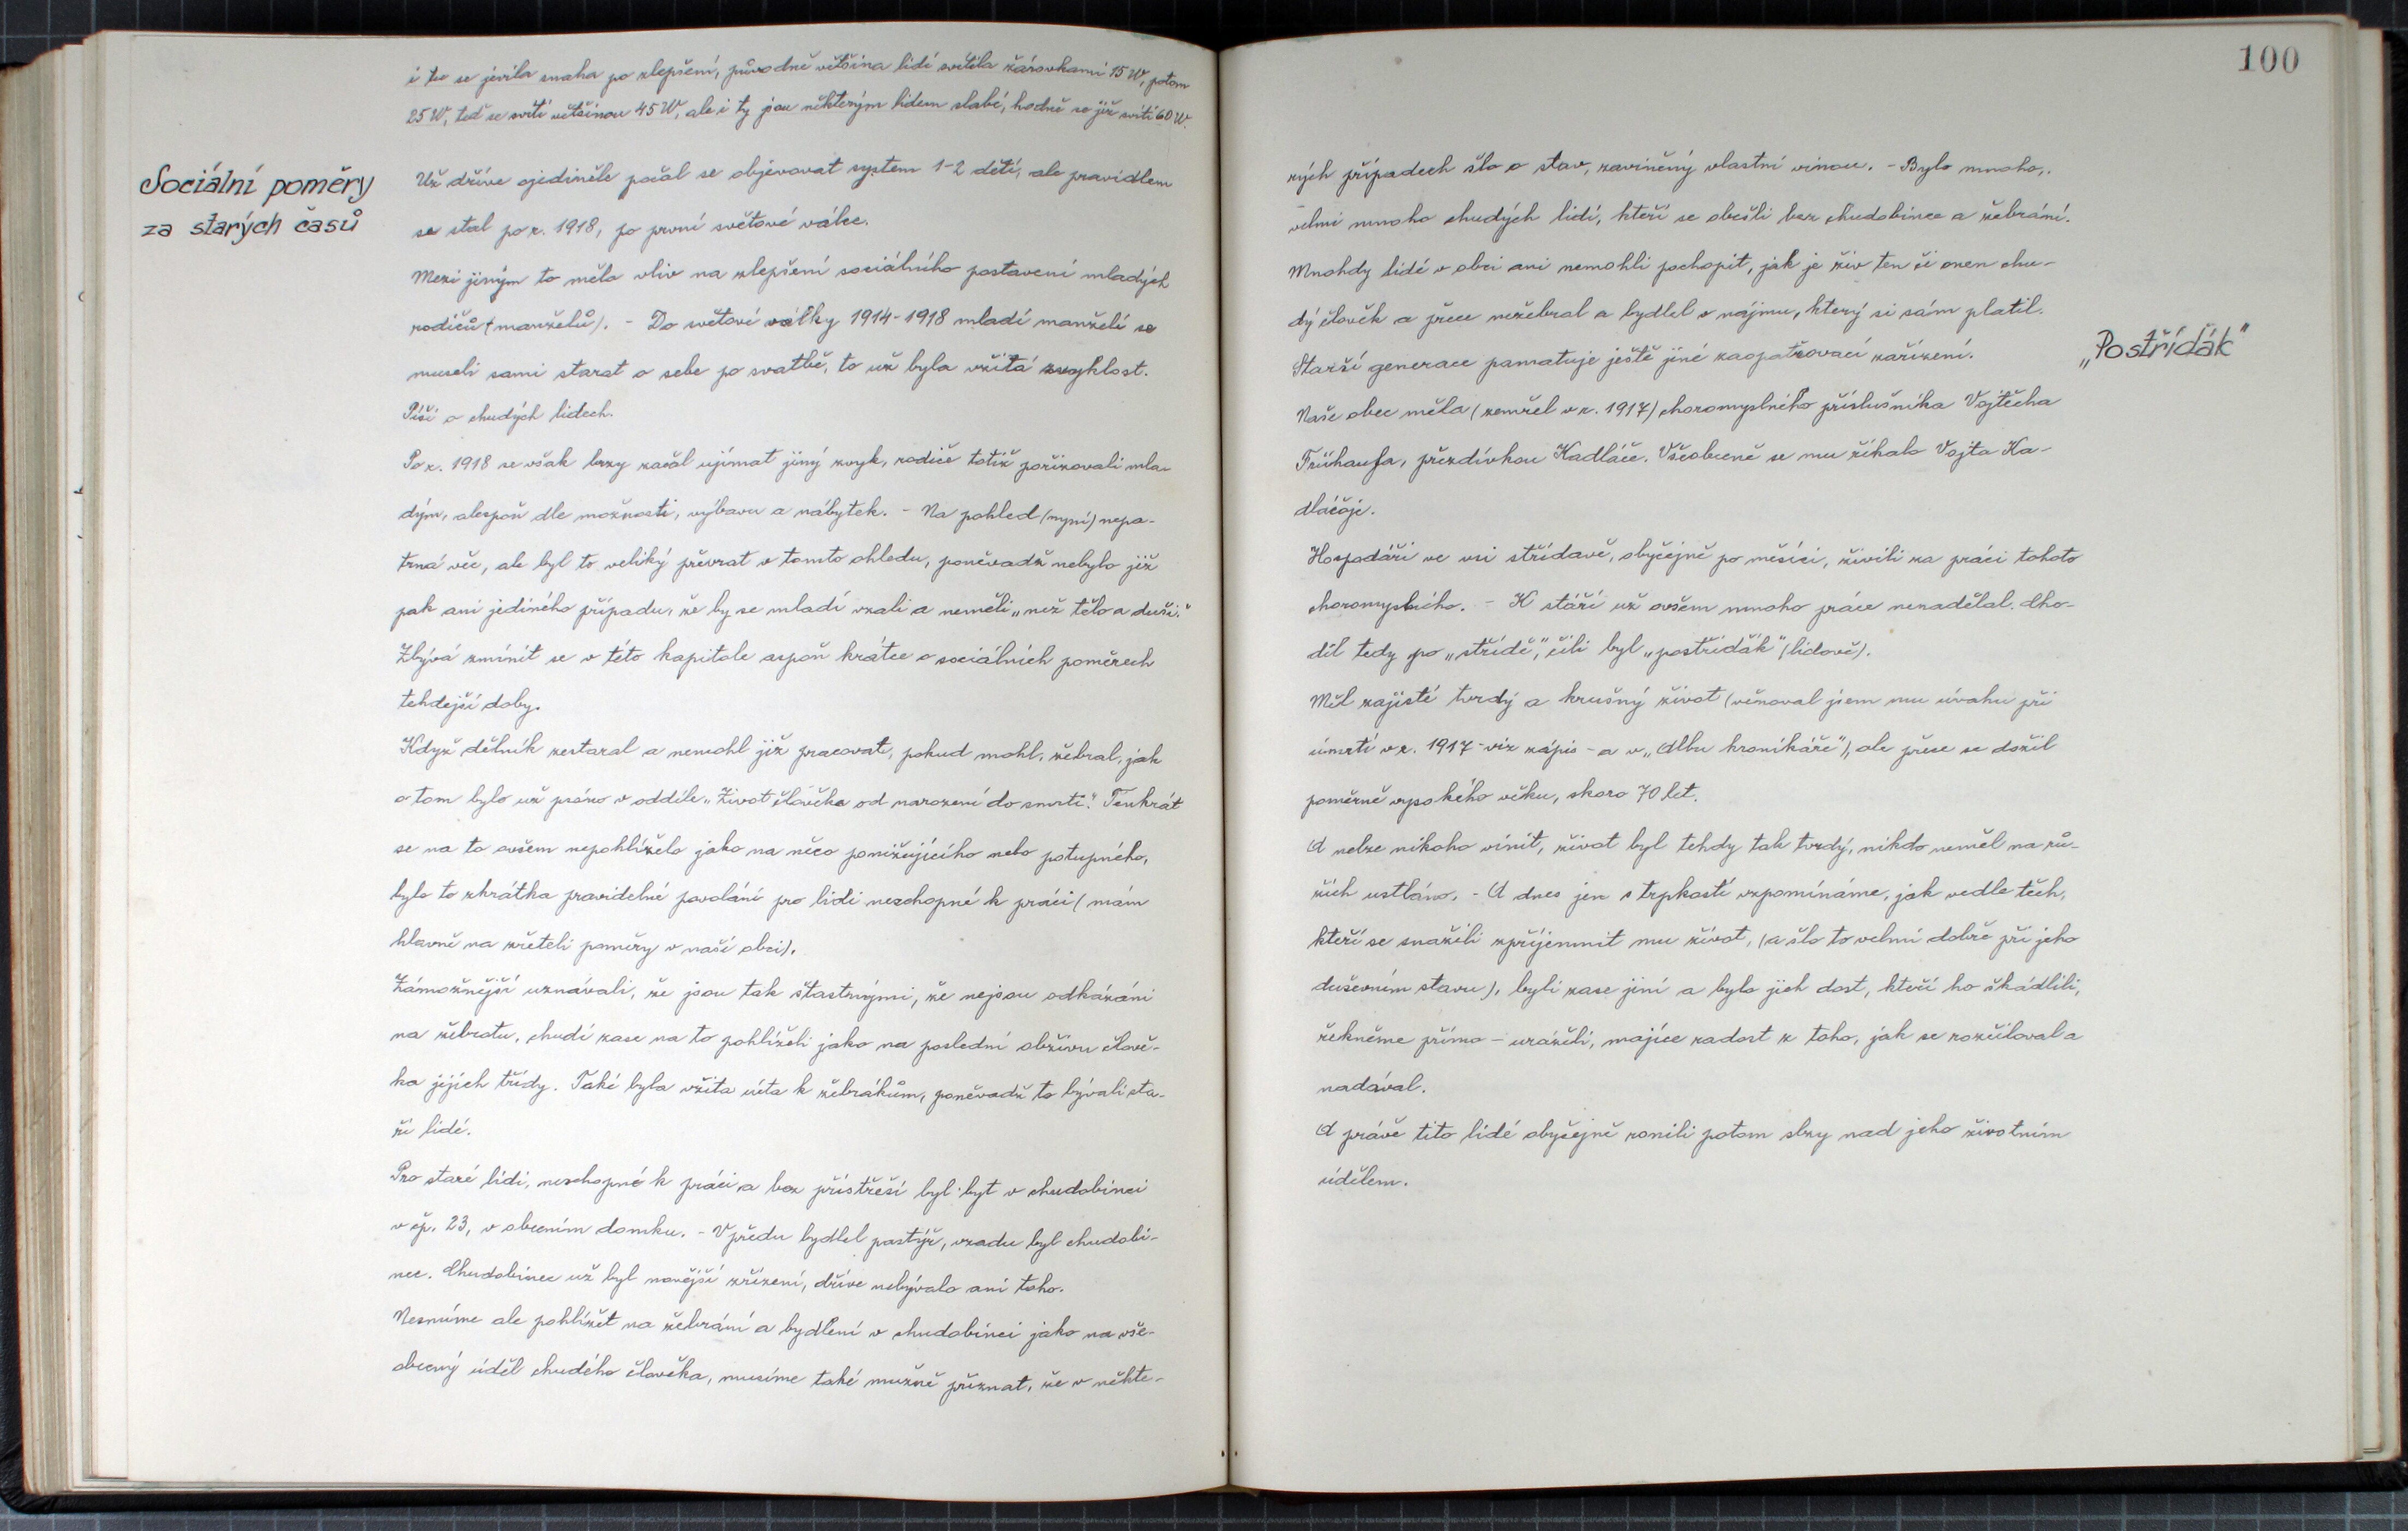 i tu se jevila snaha po zlepšení, původně většina lidí svítila žárovkami 15 W, potom
25 W, teď se svítí většinou 45 W, ale i ty jsou některým lidem slabé, hodně se již svítí 60 W.
Sociální poměry
za starých časů
Už dříve ojediněle počal se objevovat system 1-2 dětí, ale pravidlem
se stal po r. 1918, po první světové válce.
Mezi jiným to mělo vliv na zlepšení sociálního postavení mladých
rodičů (manželů). - Do světové války 1914-1918 mladí manželé se
museli sami starat o sebe po svatbě, to už byla vžitá zvyklost.
Píši o chudých lidech.
Po r. 1918 se však brzy začal ujímat jiný zvyk, rodiče totiž pořizovali mla-
dým, alespoň dle možnosti, výbavu a nábytek. - Na pohled (nyní) nepa-
trná věc, ale byl to veliký převrat v tomto ohledu, poněvadž nebylo již
pak ani jediného případu, že by se mladí vzali a neměli „než tělo a duši."
Zbývá zmínit se v této kapitole aspoň krátce o sociálních poměrech
tehdejší doby.
Když dělník zestaral a nemohl již pracovat, pokud mohl, žebral, jak
o tom bylo už psáno v oddíle „Život člověka od narození do smrti". Tenkrát
se na to ovšem nepohlíželo jako na něco ponižujícího nebo potupného,
bylo to zkrátka pravidelné povolání pro lidi neschopné k práci (mám
hlavně na zřeteli poměry v naší obci).
Zámožnější uznávali, že jsou tak šťastnými, že nejsou odkázáni
na žebrotu, chudí zase na to pohlíželi jako na poslední obživu člově-
ka jejich třídy. Také byla vžita úcta k žebrákům, poněvadž to bývali sta-
ří lidé.
Pro staré lidi, neschopné k práci a bez přístřeší byl byt v chudobinci
v čp. 23, v obecním domku. - Vpředu bydlel pastýř, vzadu byl chudobi-
nec. Chudobinec už byl novější zřízení, dříve nebývalo ani toho.
Nesmíme ale pohlížet na žebrání a bydlení v chudobinci jako na vše-
obecný úděl chudého člověka, musíme také mužně přiznat, že v někte-
100
rých případech šlo o stav, zaviněný vlastní vinou. - Bylo mnoho,
velmi mnoho chudých lidí, kteří se obešli bez chudobince a žebrání.
Mnohdy lidé v obci ani nemohli pochopit, jak je živ ten či onen chu-
dý člověk a přece nežebral a bydlel v nájmu, který si sám platil.
„Postřídák"
Starší generace pamatuje ještě jiné zaopatřovací zařízení.
Naše obec měla (zemřel v r. 1917) choromyslného příslušníka Vojtěcha
Frühaufa, přezdívkou Kadláče. Všeobecně se mu říkalo Vojta Ka-
dláčoje.
Hospodáři ve vsi střídavě, obyčejně po měsíci, živili za práci tohoto
choromyslného. - K stáří už ovšem mnoho práce nenadělal. Cho-
dil tedy po „střídě", čili byl „postřídák" (lidově).
Měl zajisté tvrdý a krušný život (věnoval jsem mu úvahu při
úmrtí v r. 1917 - viz zápis - a v „Albu kronikáře"), ale přece se dožil
poměrně vysokého věku, skoro 70 let.
A nelze nikoho vinit, život byl tehdy tak tvrdý, nikdo neměl na rů-
žích ustláno. - A dnes jen s trpkostí vzpomínáme, jak vedle těch,
kteří se snažili zpříjemnit mu život, (a šlo to velmi dobře při jeho
duševním stavu), byli zase jiní a bylo jich dost, kteří ho škádlili,
řekněme přímo - uráželi, majíce radost z toho, jak se rozčiloval a
nadával.
A právě tito lidé obyčejně ronili potom slzy nad jeho životním
údělem.